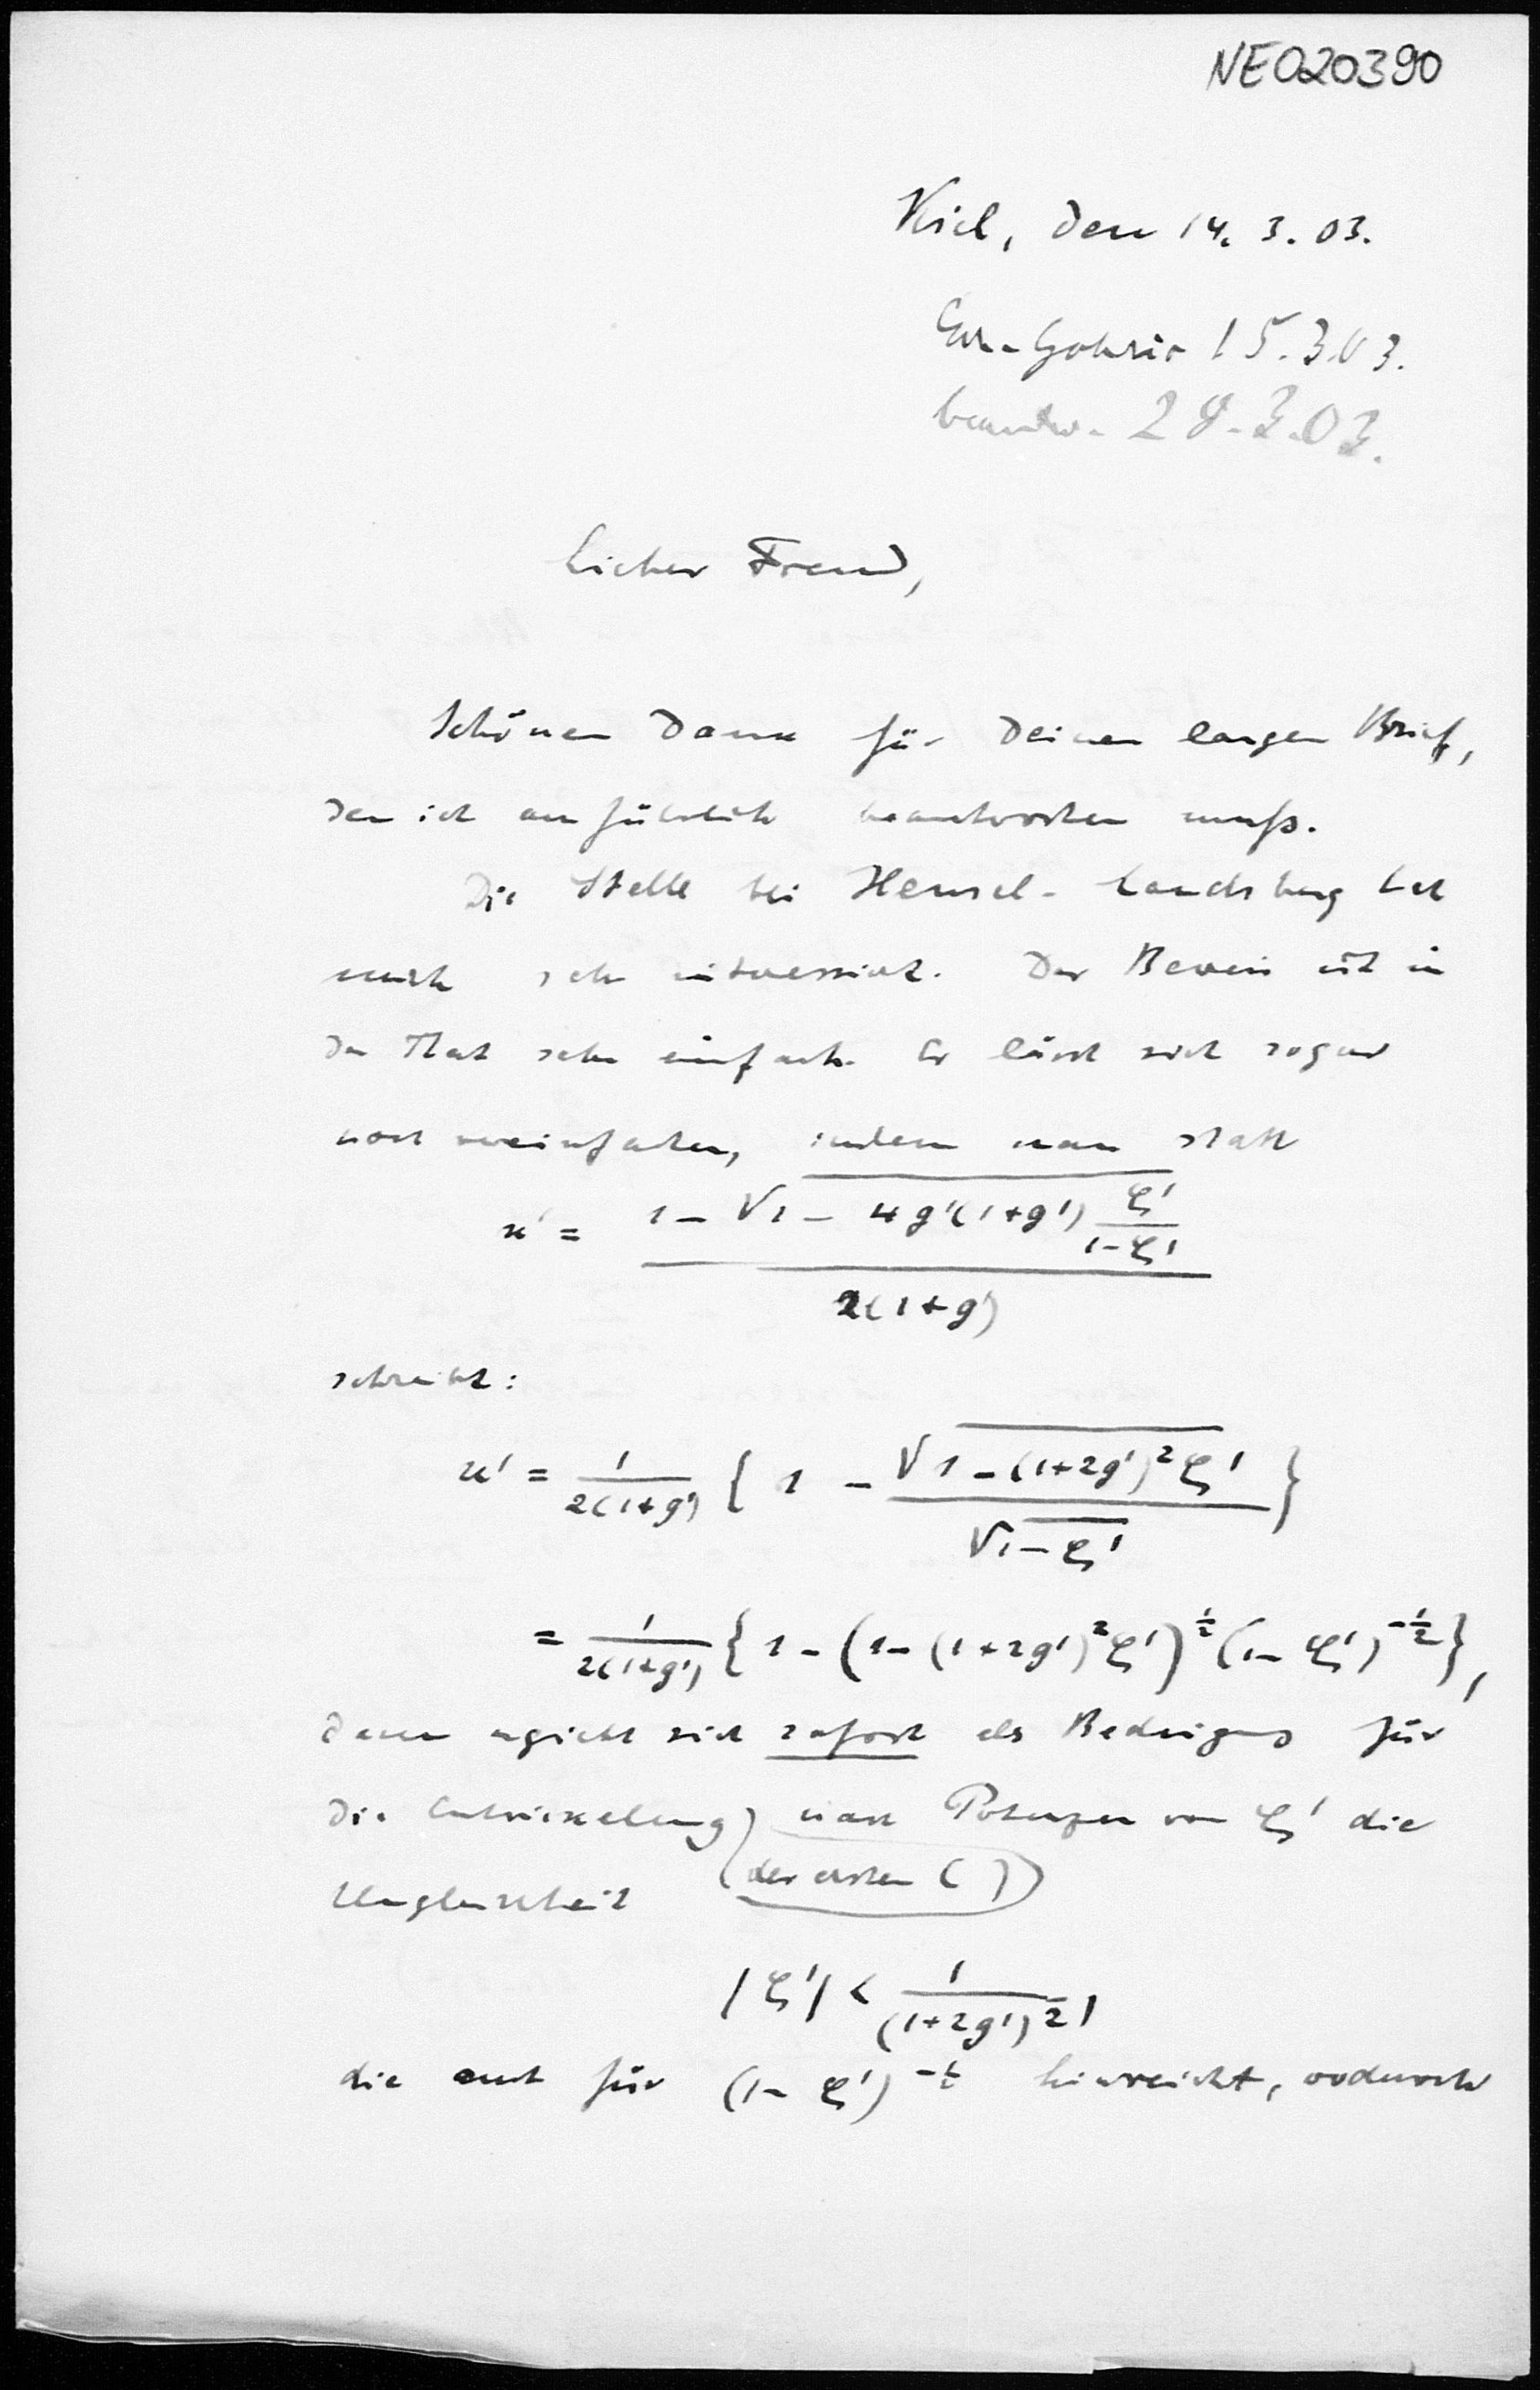 NE020390
Kiel, den 14. 3. 03.
15.3.03.
beantw. 29.3.03.
Lieber Freund,
Schönen Dank für Deinen langen Brief,
den ich ausführlich beantworten muß.
Die Stelle bei Hensel-Landsberg hat
mich sehr interessirt. Der Beweis ist in
der That sehr einfach. Er lässt sich sogar
noch vereinfachen, indem man statt
u' = (1 - √(1 - 4g'(1+g') ζ'/(1-ζ'))) / 2(1+g')
schreibt:
u' = 1/(2(1+g')) { 1 - √(1-(1+2g')²ζ') / √(1-ζ') }
= 1/(2(1+g')) { 1 - (1-(1+2g')²ζ')^½ (1-ζ')^-½ },
dann ergiebt sich sofort als Bedingung für
die Entwickelung nach Potenzen von ζ' die
(der ersten ( ))
Ungleichheit
|ζ'| < 1/(1+2g')²,
die auch für (1-ζ')^-½ hinreicht, wodurch